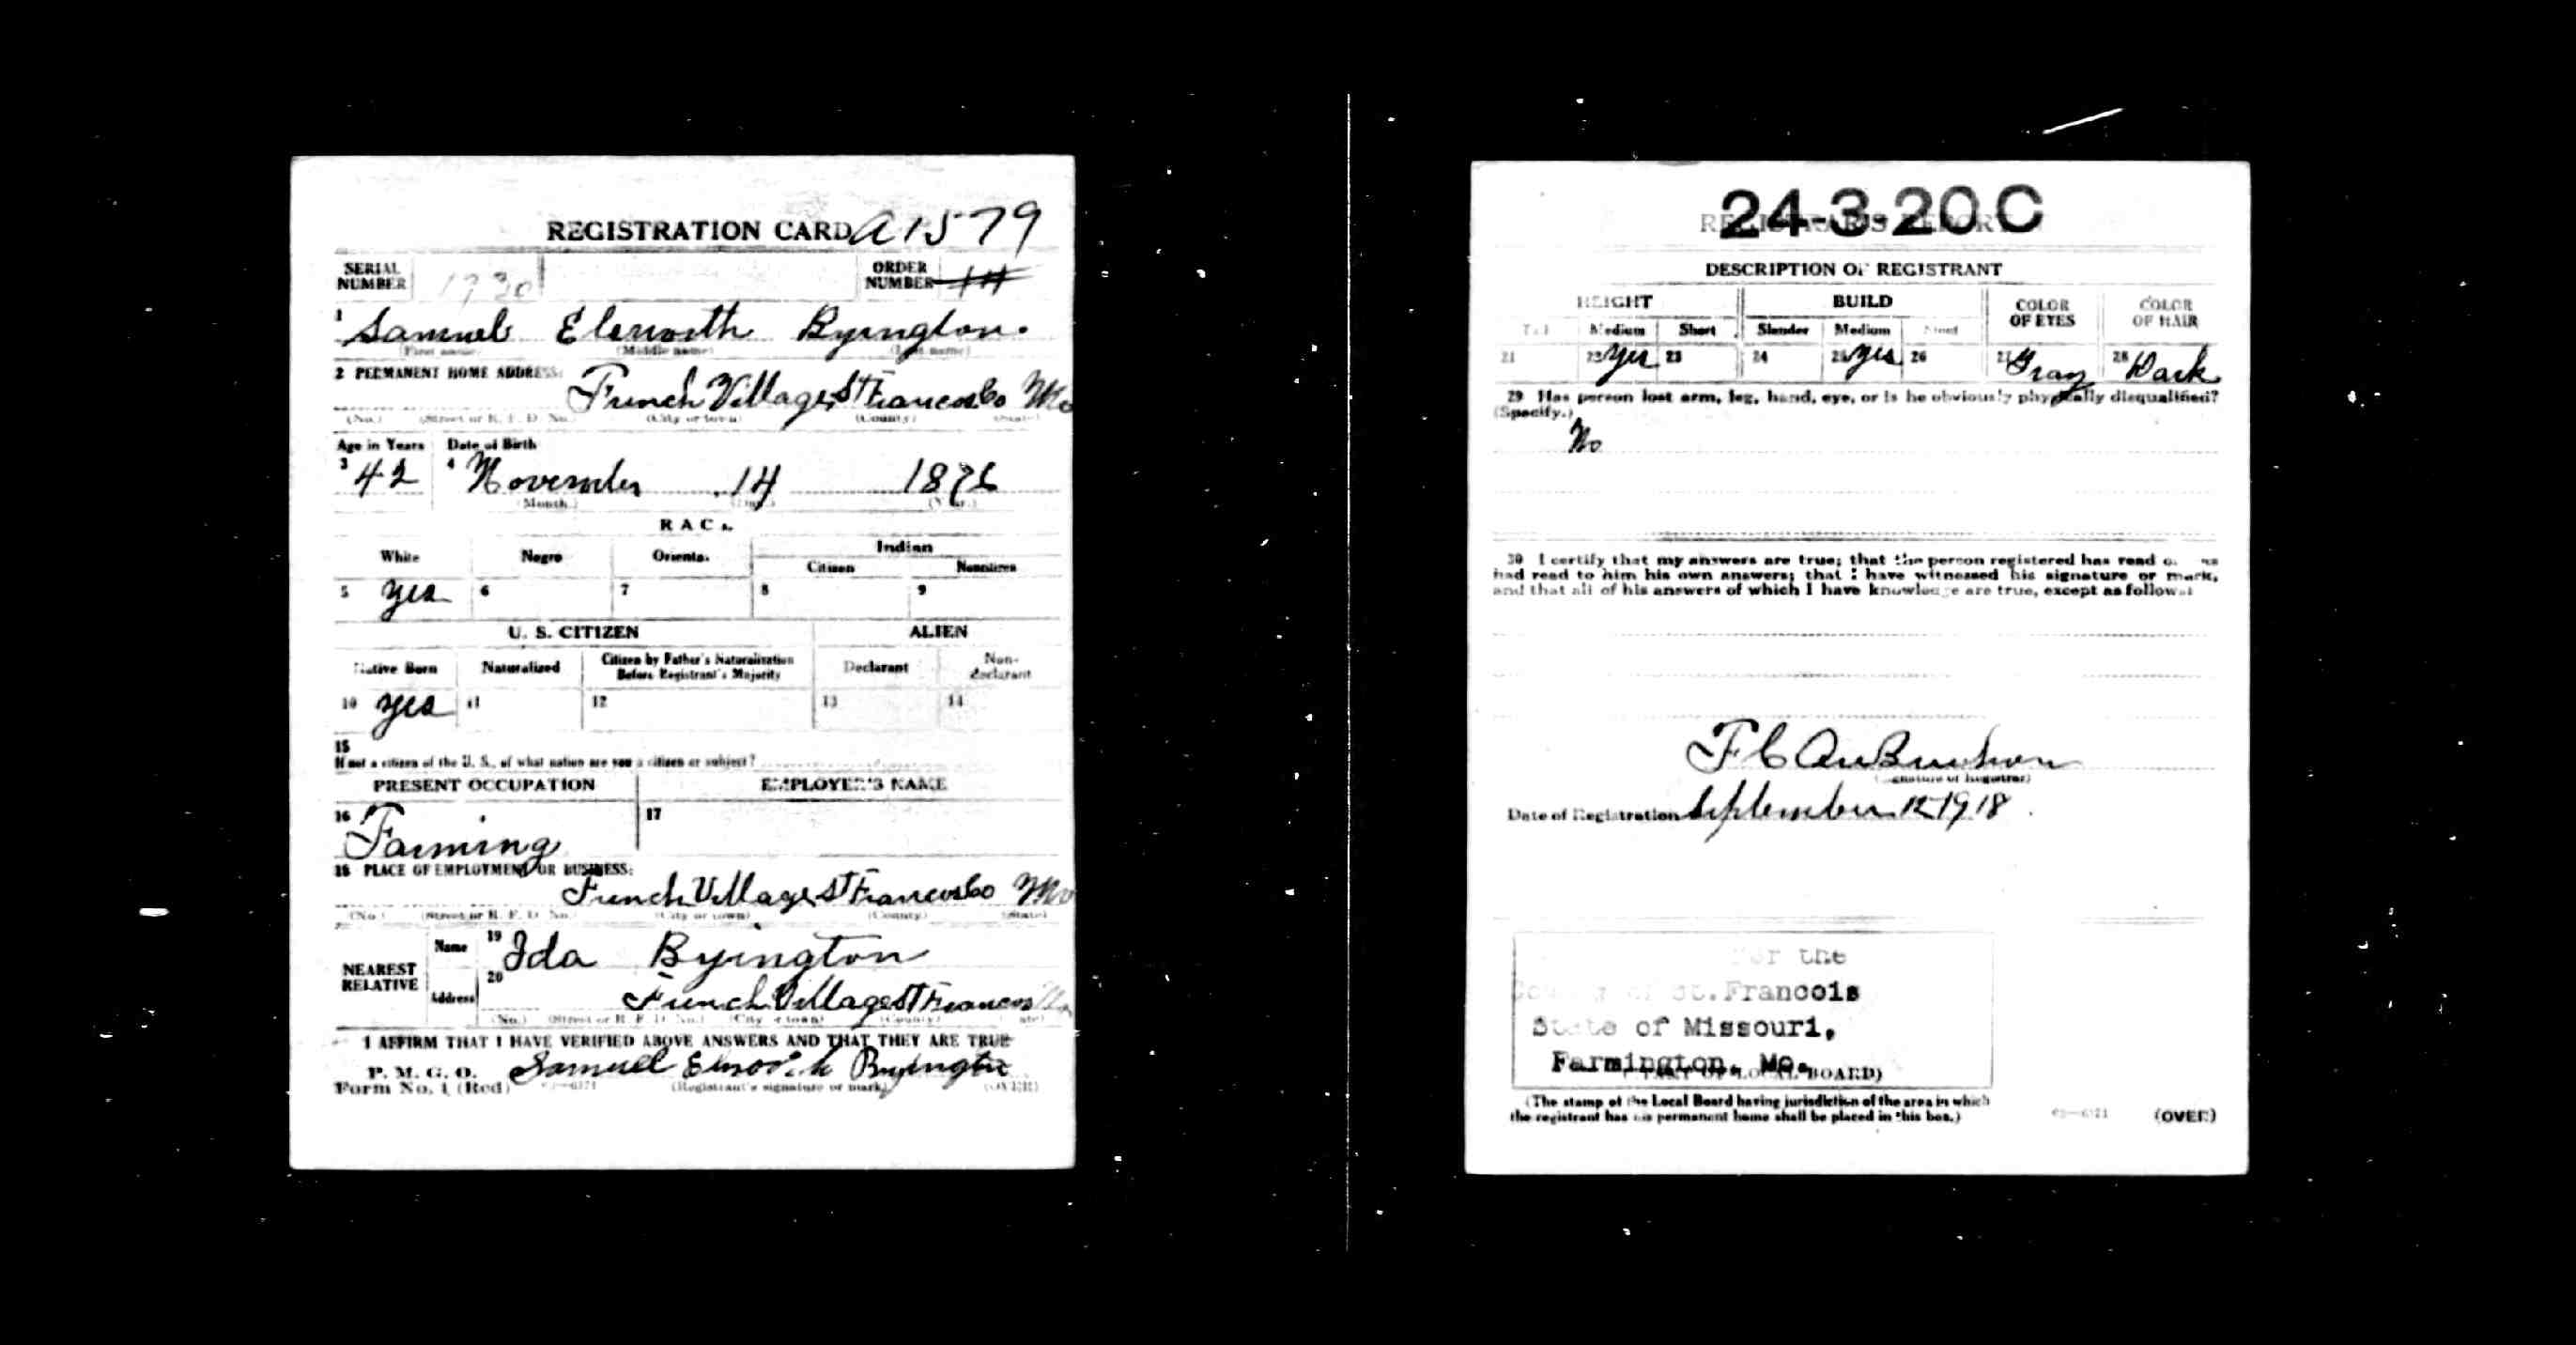 REGISTRATION CARD A1579
SERIAL NUMBER 1930 ORDER NUMBER
1 Samuel Elsworth Byington.
(First name) (Middle name) (Last name)
2 PERMANENT HOME ADDRESS:
French Village St Francois Co Mo
(No.) (Street or R. F. D. No.) (City or town) (County) (State)
Age in Years Date of Birth
3 42 4 November 14 1876
(Month.) (Day.) (Year.)
RACE
White Negro Oriental Indian
Citizen Noncitizen
5 yes 6 7 8 9
U. S. CITIZEN ALIEN
Native Born Naturalized Citizen by Father's Naturalization Before Registrant's Majority Declarant Non-declarant
10 yes 11 12 13 14
15
If not a citizen of the U. S., of what nation are you a citizen or subject?
PRESENT OCCUPATION EMPLOYER'S NAME
16 Farming 17
18 PLACE OF EMPLOYMENT OR BUSINESS:
French Village St Francois Co Mo
(No.) (Street or R. F. D. No.) (City or town) (County) (State)
NEAREST RELATIVE Name 19 Ida Byington
Address 20 French Village St Francois Mo
(No.) (Street or R. F. D. No.) (City or town) (County) (State)
I AFFIRM THAT I HAVE VERIFIED ABOVE ANSWERS AND THAT THEY ARE TRUE
P. M. G. O.
Form No. 1 (Red) Samuel Byington
(Registrant's signature or mark) (OVER)
24-3-20 C
REGISTRAR'S REPORT
DESCRIPTION OF REGISTRANT
HEIGHT BUILD COLOR OF EYES COLOR OF HAIR
Tall Medium Short Slender Medium Stout
21 22 yes 23 24 25 yes 26 27 Gray 28 Dark
29 Has person lost arm, leg, hand, eye, or is he obviously physically disqualified?
(Specify.)
No
30 I certify that my answers are true; that the person registered has read or has
had read to him his own answers; that I have witnessed his signature or mark,
and that all of his answers of which I have knowledge are true, except as follows:
F C
(Signature of Registrar)
Date of Registration September 12 1918
For the
County of St. Francois
State of Missouri,
Farmington, Mo.
(STAMP OF LOCAL BOARD)
(The stamp of the Local Board having jurisdiction of the area in which
the registrant has his permanent home shall be placed in this box.)
(OVER)